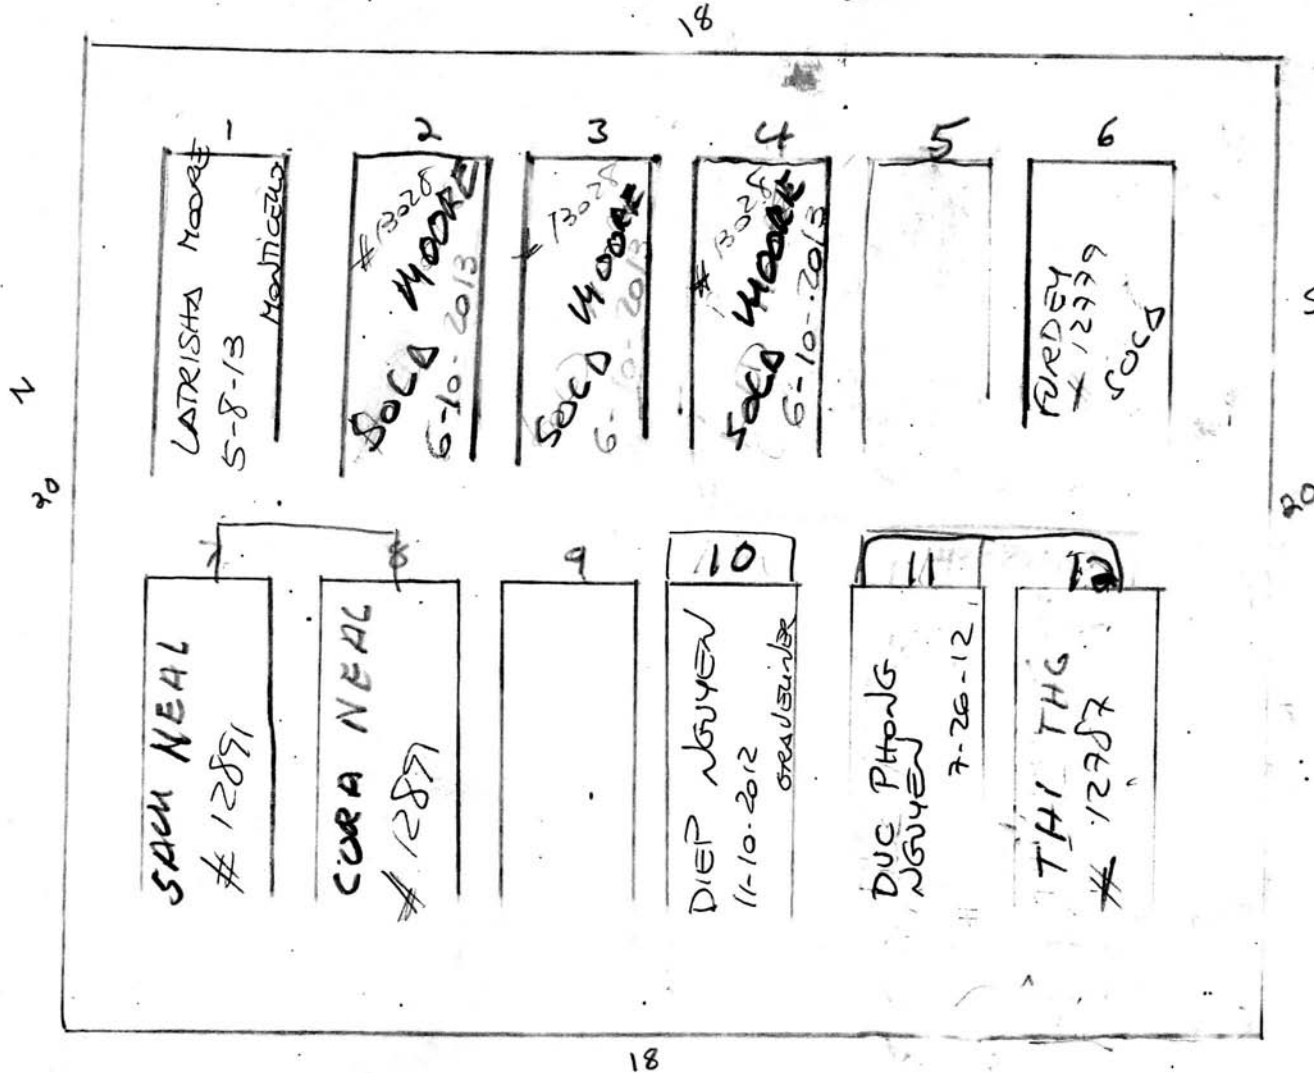 18
1
LATRISHA MOORE
5-8-13
MONTICELLO
2
# 13028
SOLD MOORE
6-10-2013
3
# 13028
SOLD MOORE
6-10-2013
4
# 13028
SOLD MOORE
6-10-2013
5
6
# 12779
SOLD
N
S
20
20
7
NEAL
# 12891
8
CORA NEAL
# 12891
9
10
DIEP NGUYEN
11-10-2012
11
DUC PHONG
NGUYEN
7-26-12
12
THI THG
# 12787
18